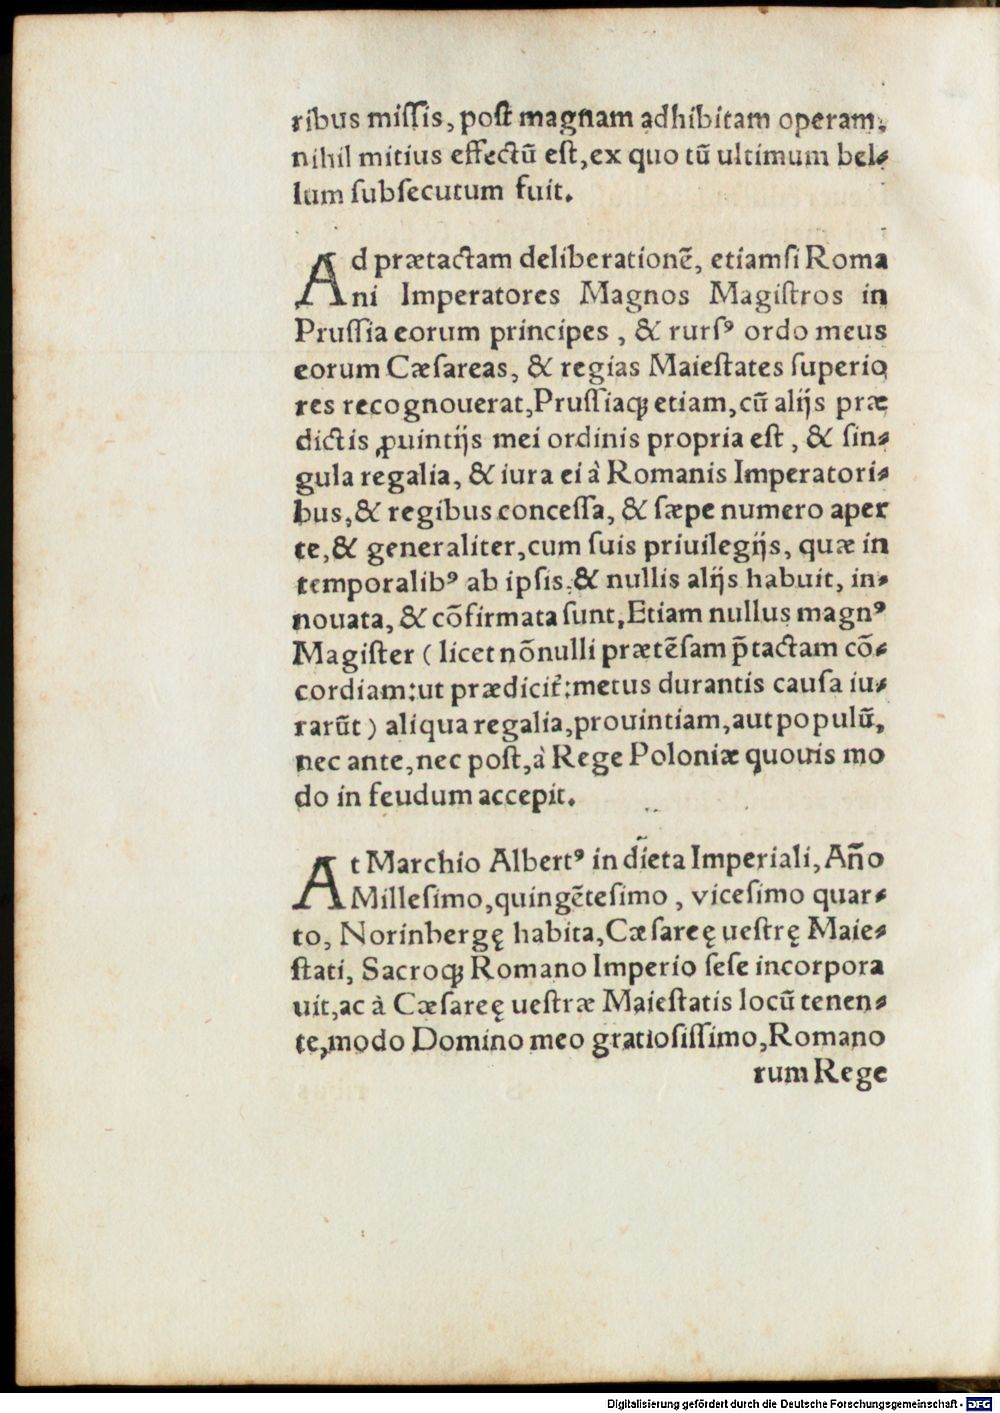 ribus miſſis, poſt magnam adhibitam operam,
nihil mitius effectū eſt, ex quo tū ultimum bel-
lum ſubſecutum fuit.
Ad prætactam deliberationē, etiamſi Roma
ni Imperatores Magnos Magiſtros in
Pruſſia eorum principes, & rurſꝰ ordo meus
eorum Cæſareas, & regias Maieſtates ſuperio
res recognouerat, Pruſſiaqꝫ etiam, cū alijs præ
dictis ꝓuintijs mei ordinis propria eſt, & ſin-
gula regalia, & iura ei à Romanis Imperatori-
bus, & regibus conceſſa, & ſæpe numero aper
te, & generaliter, cum ſuis priuilegijs, quæ in
temporalibꝰ ab ipſis. & nullis alijs habuit, in-
nouata, & cōfirmata ſunt, Etiam nullus magnꝰ
Magiſter (licet nōnulli prætēſam p̄tactam cō-
cordiam: ut prædicit̃: metus durantis cauſa iu-
rarūt) aliqua regalia, prouintiam, aut populū,
nec ante, nec poſt, à Rege Poloniæ quouis mo
do in feudum accepit.
At Marchio Albertꝰ in dieta Imperiali, Año
Milleſimo, quingēteſimo, viceſimo quar-
to, Norinbergę habita, Cæſareę ueſtrę Maie-
ſtati, Sacroqꝫ Romano Imperio ſeſe incorpora
uit, ac à Cæſareę ueſtræ Maieſtatis locū tenen-
te, modo Domino meo gratioſiſſimo, Romano
rum Rege
Digitalisierung gefördert durch die Deutsche Forschungsgemeinschaft - DFG